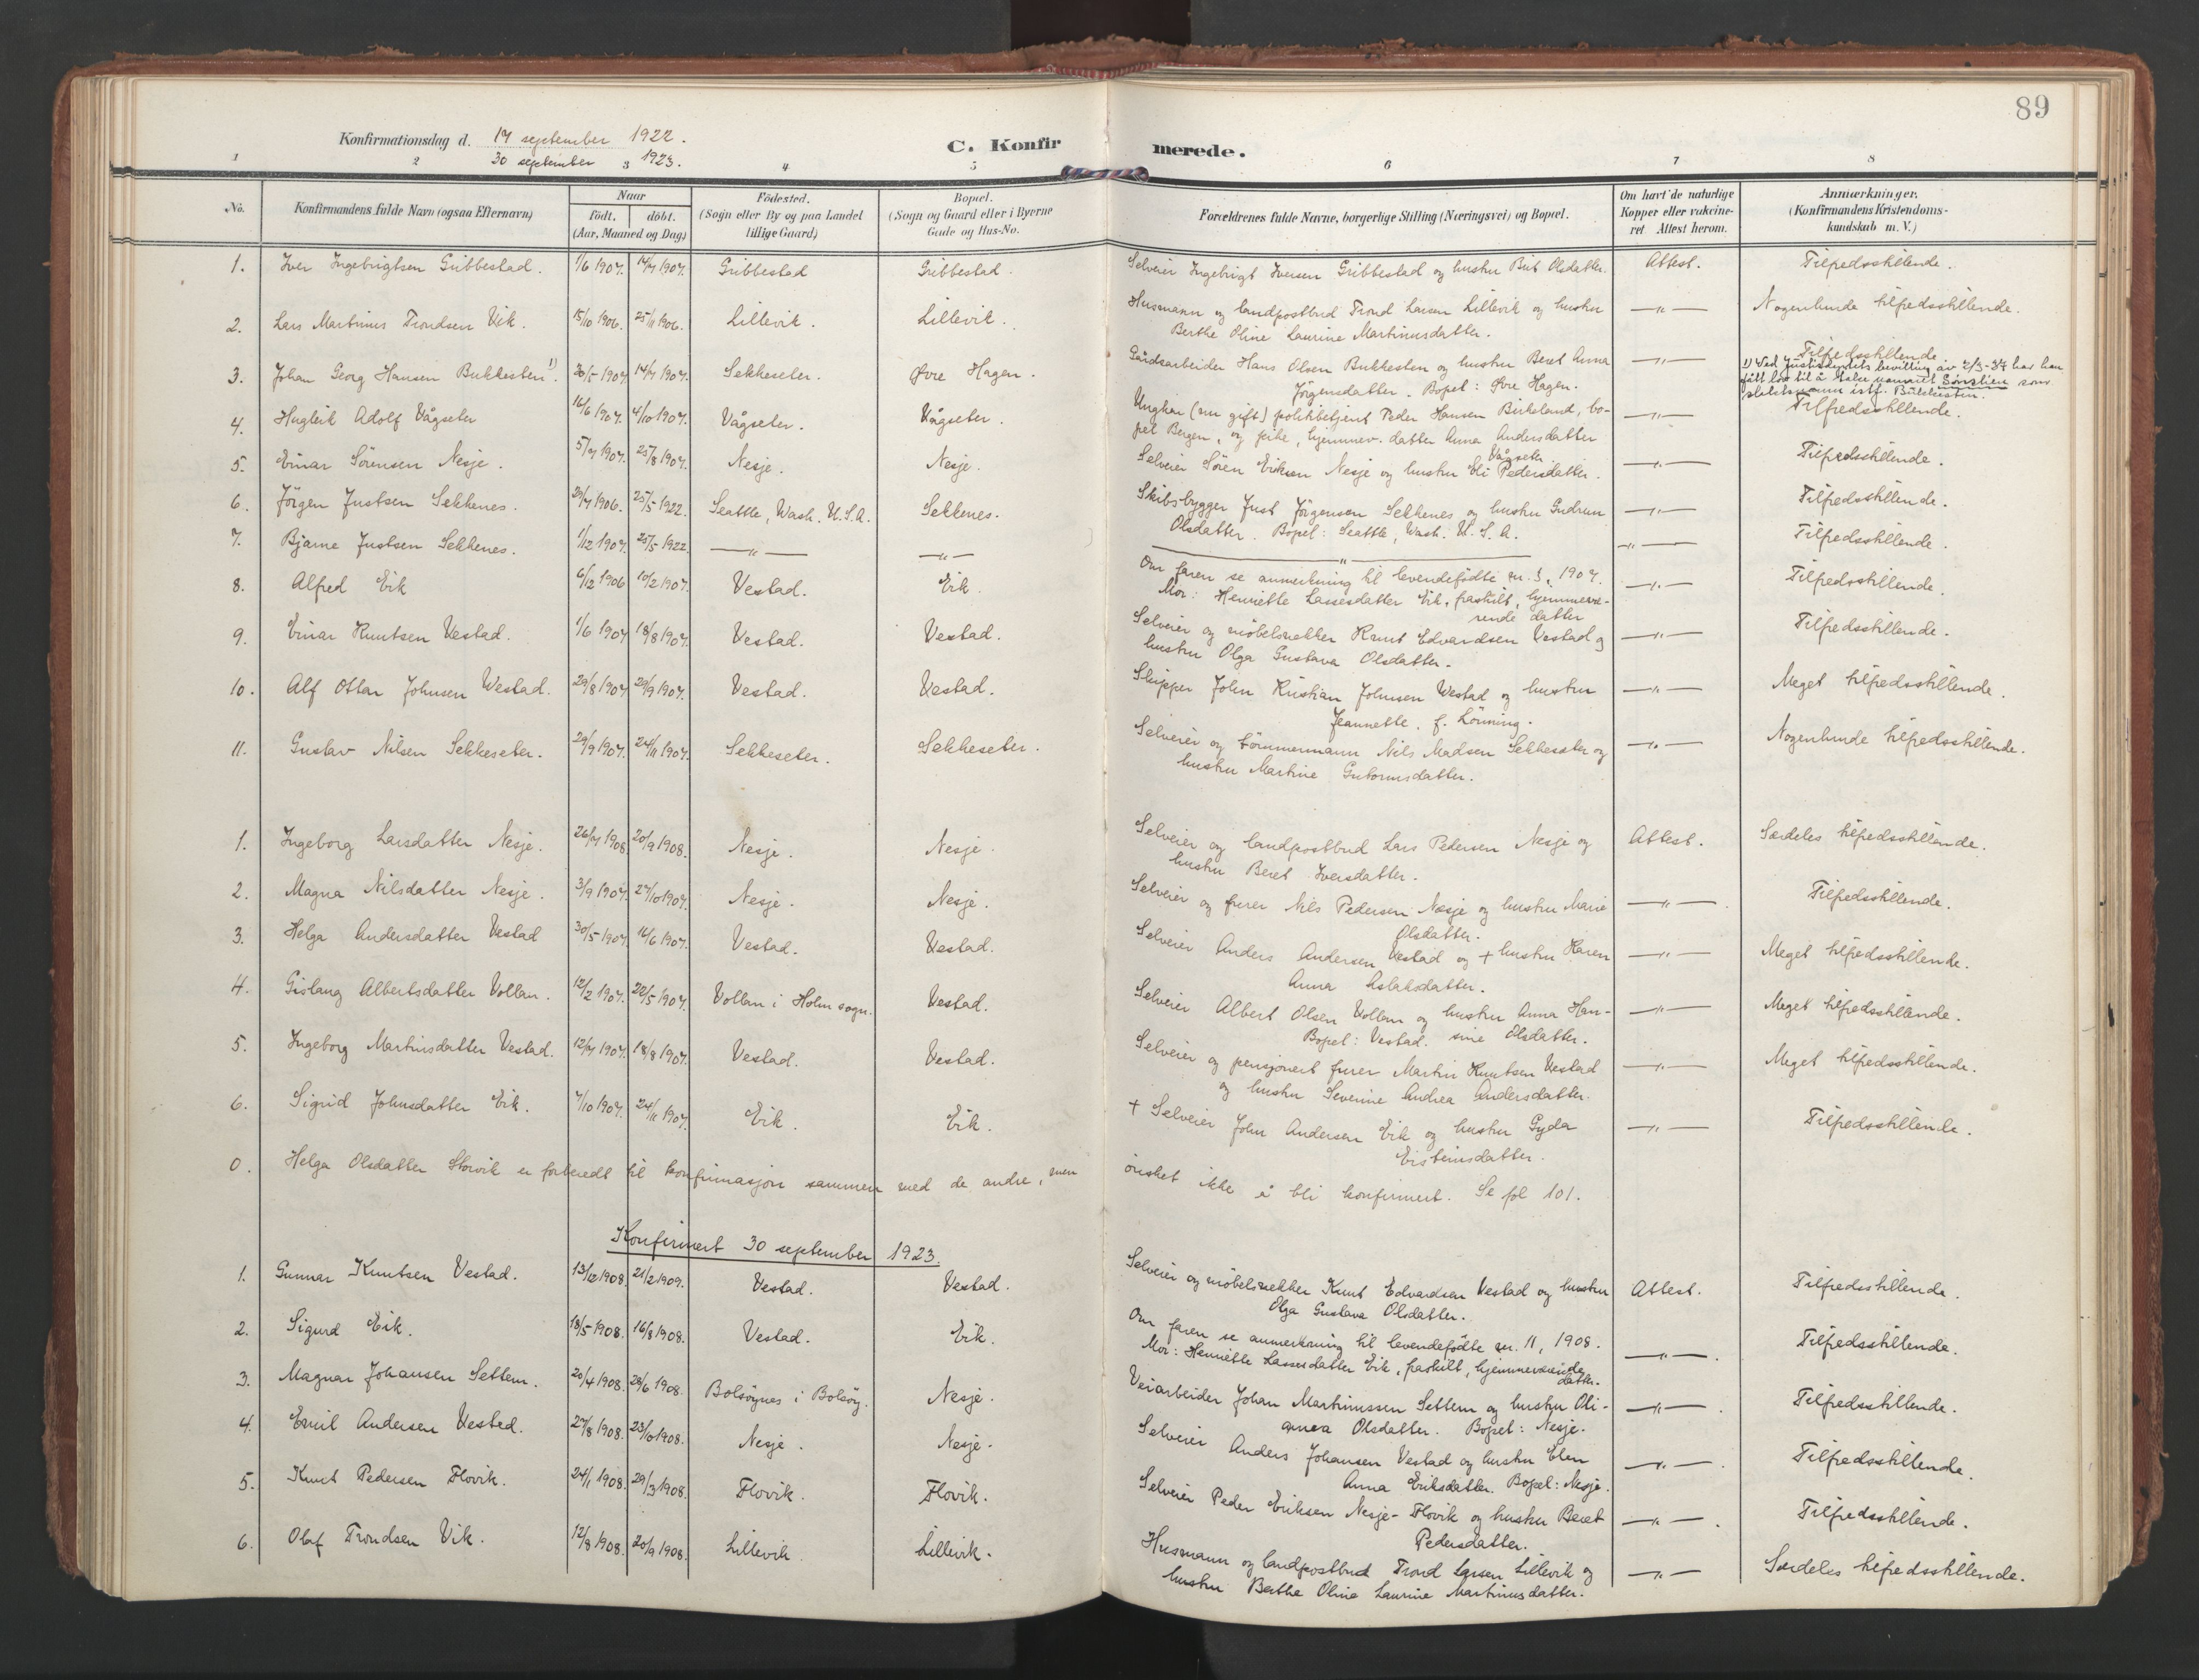 89
Konfirmationsdag d. 17 september 1922.
30 september 1923.
C. Konfirmerede.
1 2 3 4 5 6 7 8
No.
Konfirmandens fulde Navn (ogsaa Efternavn)
Naar
födt. döbt.
(Aar, Maaned og Dag)
Födested.
(Sogn eller By og paa Landet
tillige Gaard)
Bopæl.
(Sogn og Gaard eller i Byerne
Gade og Hus-No.
Forældrenes fulde Navne, borgerlige Stilling (Næringsvei) og Bopæl.
Om havt de naturlige
Kopper eller vakcine-
ret Attest herom.
Anmærkninger.
(Konfirmandens Kristendoms-
kundskab m. V.)
1. Iver Ingebrigtsen Gribbestad. 1/6 1907. 14/7 1907. Gribbestad Gribbestad. Selveier Ingebrigt Iversen Gribbestad og hustru Brit Olsdatter. Attest. Tilfredsstillende.
2. Lars Martinus Trondsen Vik. 15/10 1906. 25/11 1906. Lillevik. Lillevik. Husmann og landpostbud Trond Larsen Lillevik og hustru —"— Nogenlunde tilfredsstillende.
Berthe Oline Laurine Martinusdatter.
3. Johan Georg Hansen Bukkesten 1). 20/5 1907 14/7 1907. Sekkeseter. Øvre Hagen. Gårdsarbeider Hans Olsen Bukkesten og hustru Beret Anna —"— Tilfredsstillende
Jörgensdatter. Bopel: Øvre Hagen.
1) Ved Justisdep.tets bevilling av 2/3-34 har han
fått lov til å ta navnet Sörstien som
slektsnavn istf. Bukkesten.
4. Hugleik Adolf Vågseter 16/6 1907. 4/10 1907. Vågseter. Vågseter. Ungkar (nu gift) politibetjent Peder Hansen Birkeland, bo- —"— Tilfredsstillende.
pel Bergen, og pike, hjemmev. datter Anna Andersdatter
Vågseter.
5. Einar Sörensen Nesje. 5/7 1907. 25/8 1907. Nesje. Nesje. Selveier Sören Eriksen Nesje og hustru Eli Pedersdatter. —"— Tilfredsstillende.
6. Jörgen Justsen Sekkenes. 29/7 1906. 25/5 1922. Seattle, Wash. U.S.A. Sekkenes. Skibsbygger Just Jörgensen Sekkenes og hustru Gudrun —"— Tilfredsstillende.
Olsdatter. Bopel: Seattle, Wash. U.S.A.
7. Bjarne Justsen Sekkenes. 1/12 1907. 25/5 1922. —"— —"— —"— —"— Tilfredsstillende.
8. Alfred Eik 6/12 1906 10/2 1907. Vestad. Eik. Om faren se anmerkning til levendefödte nr. 3, 1907. —"— Tilfredsstillende.
Mor: Henriette Lassesdatter Eik, fraskilt, hjemmevæ-
rende datter
9. Einar Knutsen Vestad. 1/6 1907 18/8 1907. Vestad. Vestad. Selveier og möbelsnekker Knut Edvardsen Vestad og —"— Tilfredsstillende.
hustru Olga Gustava Olsdatter.
10. Alf Ottar Johnsen Westad. 29/8 1907 29/9 1907. Vestad. Vestad. Skipper John Kristian Johnsen Westad og hustru —"— Meget tilfredsstillende.
Jeannette, f. Lönning.
11. Gustav Nilsen Sekkeseter. 29/9 1907. 24/11 1907. Sekkeseter. Sekkeseter. Selveier og tömmermann Nils Madsen Sekkeseter og —"— Nogenlunde tilfredsstillende.
hustru Martine Gutormsdatter.
1. Ingeborg Larsdatter Nesje. 26/7 1908 20/9 1908. Nesje. Nesje. Selveier og landpostbud Lars Pedersen Nesje og Attest. Særdeles tilfredsstillende.
hustru Beret Iversdatter.
2. Magna Nilsdatter Nesje. 3/9 1907. 27/10 1907. Nesje. Nesje. Selveier og furer Nils Pedersen Nesje og hustru Marie —"— Tilfredsstillende.
Olsdatter.
3. Helga Andersdatter Vestad 30/5 1907 16/6 1907. Vestad. Vestad. Selveier Anders Andersen Vestad og + hustru Karen —"— Meget tilfredsstillende.
Anna Aslaksdatter.
4. Gislaug Albertsdatter Vollan. 12/2 1907. 22/5 1907. Vollan i Holm sogn. Vestad. Selveier Albert Olsen Vollan og hustru Anna Han- —"— Meget tilfredsstillende.
Bopel: Vestad. sine Olsdatter.
5. Ingeborg Martinsdatter Vestad. 12/7 1907. 18/8 1907. Vestad. Vestad. Selveier og pensjonert furer Martin Knutsen Vestad —"— Meget tilfredsstillende.
og hustru Severine Andrea Andersdatter.
6. Sigrid Johnsdatter Eik. 7/10 1907. 24/11 1907. Eik. Eik. + Selveier John Andersen Eik og hustru Gyda —"— Tilfredsstillende.
Eisteinsdatter.
0. Helga Olsdatter Storvik er forberedt til konfirmasjon sammen med de andre, men önsket ikke å bli konfirmert. Se fol 101.
Konfirmert 30 september 1923.
1. Gunnar Knutsen Vestad. 13/12 1908. 21/2 1909. Vestad. Vestad. Selveier og möbelsnekker Knut Edvardsen Vestad og hustru Attest. Tilfredsstillende.
Olga Gustava Olsdatter.
2. Sigurd Eik. 18/5 1908. 16/8 1908. Vestad. Eik. Om faren se anmerkning til levendefödte nr. 11, 1908. —"— Tilfredsstillende.
Mor: Henriette Lassesdatter Eik, fraskilt, hjemmeværende
datter.
3. Magnar Johansen Settem. 20/4 1908. 28/6 1908. Bolsöynes i Bolsöy. Nesje. Veiarbeider Johan Martinussen Settem og hustru Oli- —"— Tilfredsstillende.
anna Olsdatter. Bopel: Nesje.
4. Emil Andersen Vestad. 27/8 1908. 23/10 1908. Nesje. Nesje. Selveier Anders Johansen Vestad og hustru Elen —"— Tilfredsstillende.
Anna Eriksdatter. Bopel: Nesje.
5. Knut Pedersen Flovik. 24/1 1908. 29/3 1908. Flovik. Flovik. Selveier Peder Eriksen Nesje-Flovik og hustru Beret —"— Tilfredsstillende.
Pedersdatter.
6. Olaf Trondsen Vik. 12/8 1908. 20/9 1908. Lillevik. Lillevik. Husmann og landpostbud Trond Larsen Lillevik og —"— Særdeles tilfredsstillende.
hustru Berthe Oline Laurine Martinusdatter.